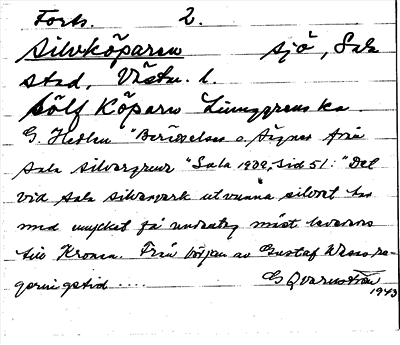 Forts. 2.
Silvköparen sjö, Sala
stad, Västm. l.
sölfköparn Ljunggrens ka.
G. Hedlu "Berättelser o. Sägner från
Sala Silvergruva" Sala 1939, sid 51: "Det
vid Sala silververk utvunna silvret har
med mycket få undantag måst levereras
till Kronan. Från början av Gustaf Wasas re-
geringstid ....
G Qvarnström
1943